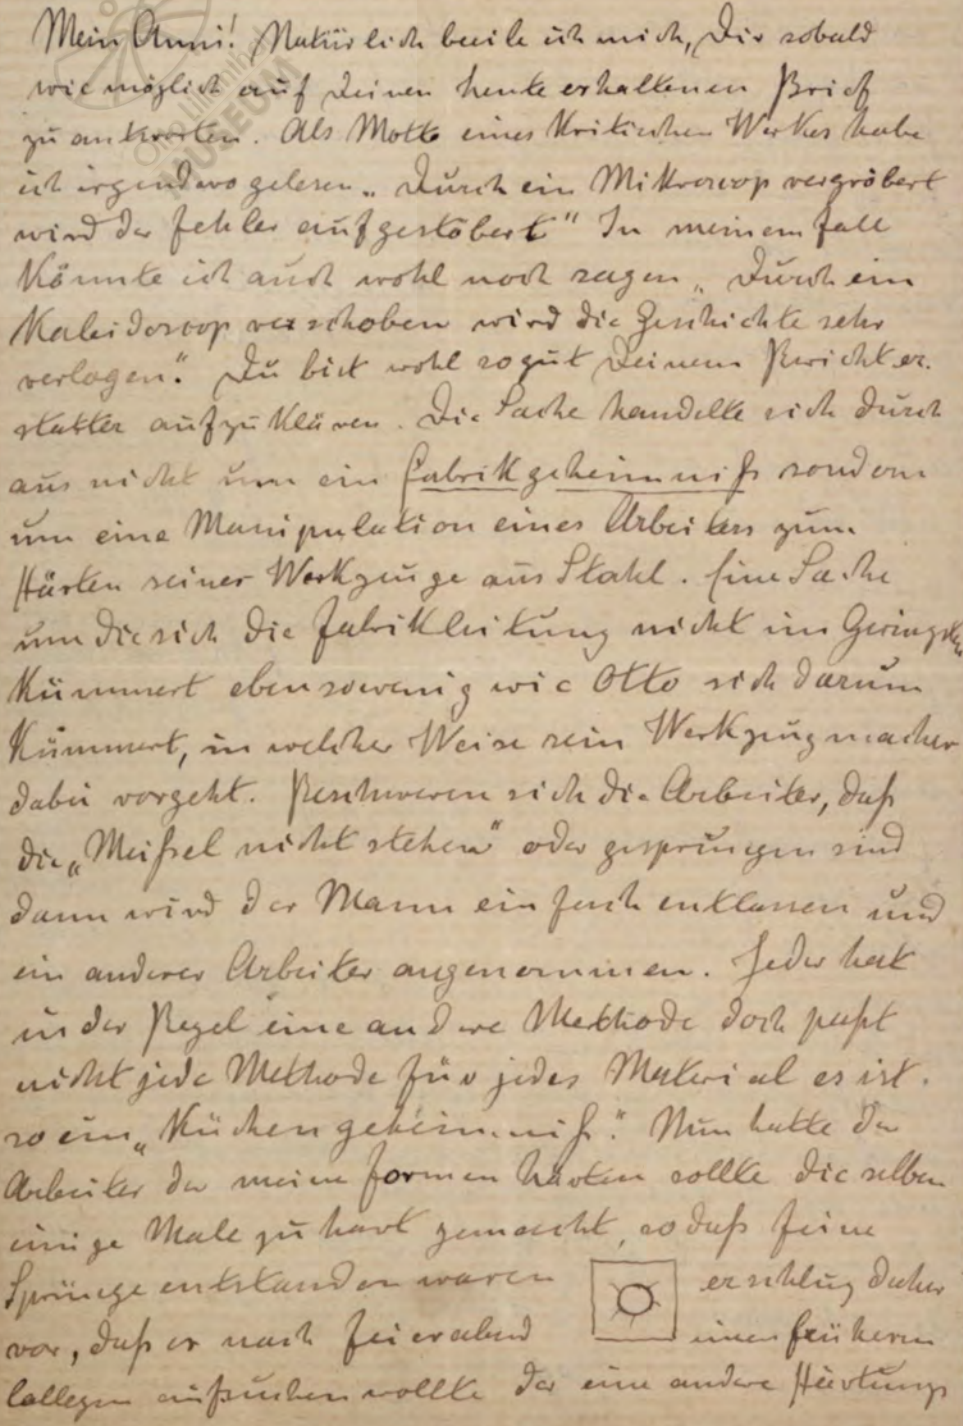 Mein Anni! Natürlich beeile ich mich, Dir sobald
wie möglich auf Deinen heute erhaltenen Brief
zu antworten. Als Motto eines Kritischen Werkes habe
ich irgendwo gelesen „Durch ein Mikroscop vergröbert
wird der Fehler aufgestöbert" In meinem Fall
Könnte ich auch wohl noch sagen „Durch ein
Kaleidoscop verschoben wird die Geschichte sehr
verlogen". Du bist wohl so gut Deinem Bericht er-
statter aufzuklären. Die Sache handelte sich durch
aus nicht um ein Fabrikgeheimniß sondern
um eine Manipulation eines Arbeiters zum
Härten seiner Werkzeuge aus Stahl. Eine Sache
um die sich die Fabrikleitung nicht im Geringsten
Kümmert ebensowenig wie Otto sich darum
Kümmert, in welcher Weise sein Werkzeugmacher
dabei vorgeht. Beschweren sich die Arbeiter, daß
die „Meißel nicht stehen" oder gesprungen sind
dann wird der Mann einfach entlassen und
ein anderer Arbeiter angenommen. Jeder hat
in der Regel eine andere Methode doch paßt
nicht jede Methode für jedes Material es ist.
so ein „Küchengeheimniß". Nun hatte der
Arbeiter der meine Formen härten sollte dieselben
einige Male zu hart gemacht, so daß feine
Sprünge entstanden waren er schlug daher
vor, daß er nach Feierabend einen früheren
Collegen aufsuchen wollte der eine andere Härtungs
MUSEUM